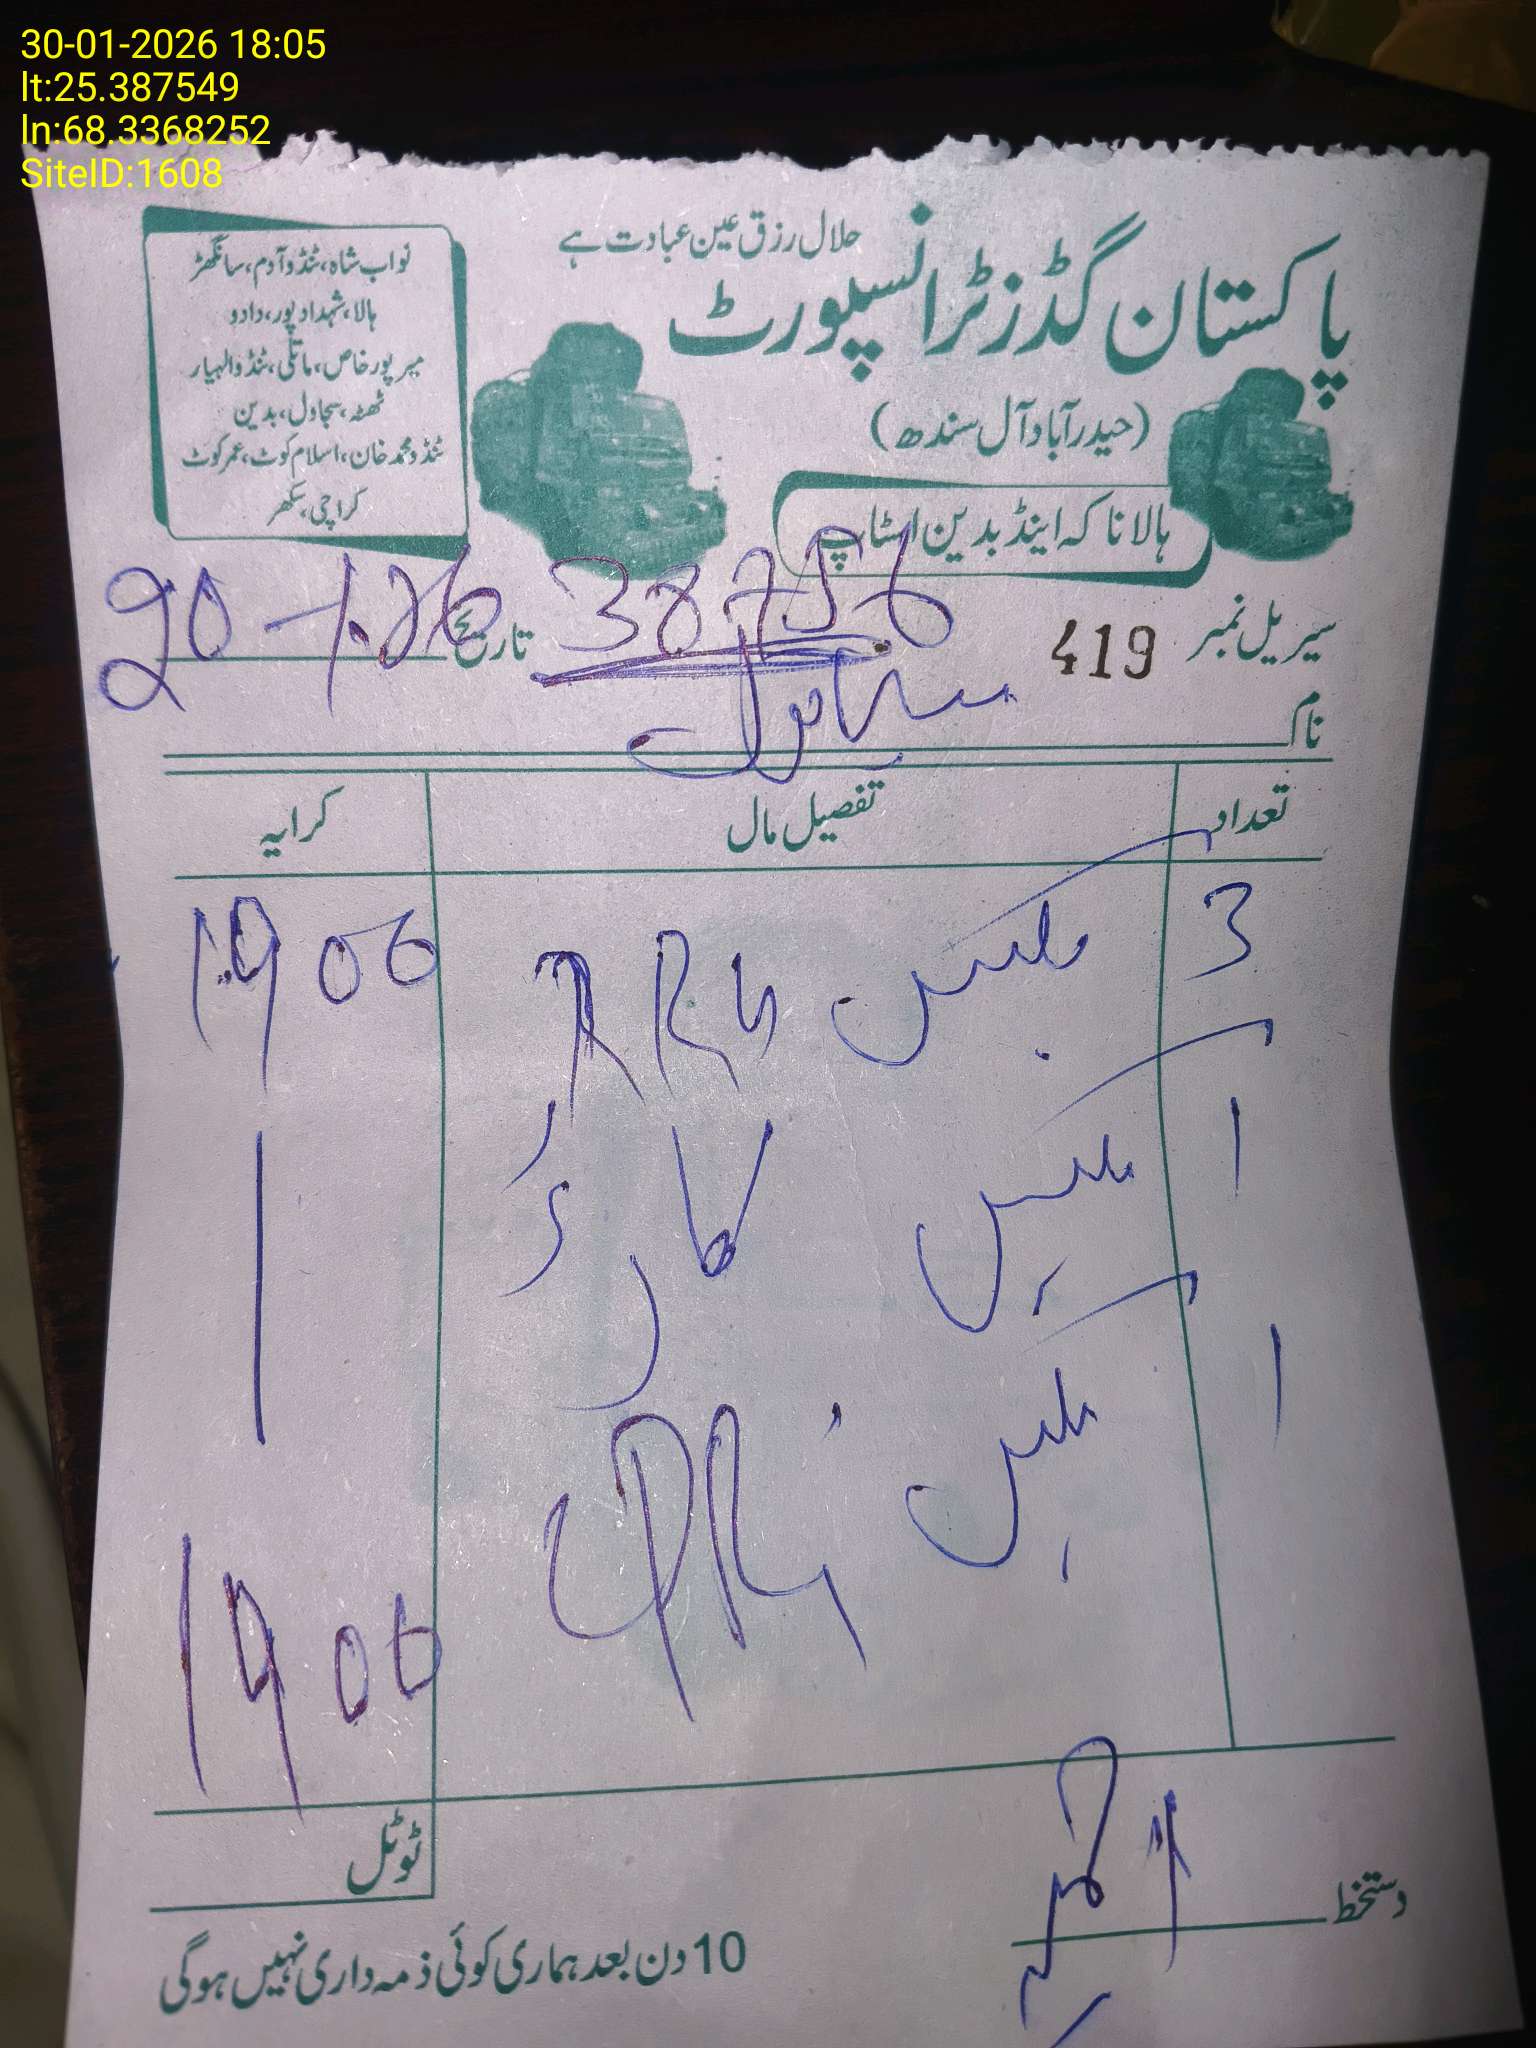 30-01-2026 18:05
lt:25.387549
ln:68.3368252
SiteID:1608
حلال رزق عین عبادت ہے
پاکستان گڈز ٹرانسپورٹ
(حیدرآباد و آل سندھ)
ہالا ناکہ اینڈ بدین اسٹاپ
نواب شاہ، ٹنڈو آدم، سانگھڑ
ہالا، شہداد پور، دادو
میرپور خاص، ماتلی، ٹنڈوالہیار
ٹھٹہ، سجاول، بدین
ٹنڈو محمد خان، اسلام کوٹ، عمر کوٹ
کراچی، سکھر
سیریل نمبر 419 38756 تاریخ
نام
تعداد تفصیل مال کرایہ
3 بکس RRU 1900
1 بکس کارٹر
1 بکس
1900
ٹوٹل
دستخط
10 دن بعد ہماری کوئی ذمہ داری نہیں ہوگی